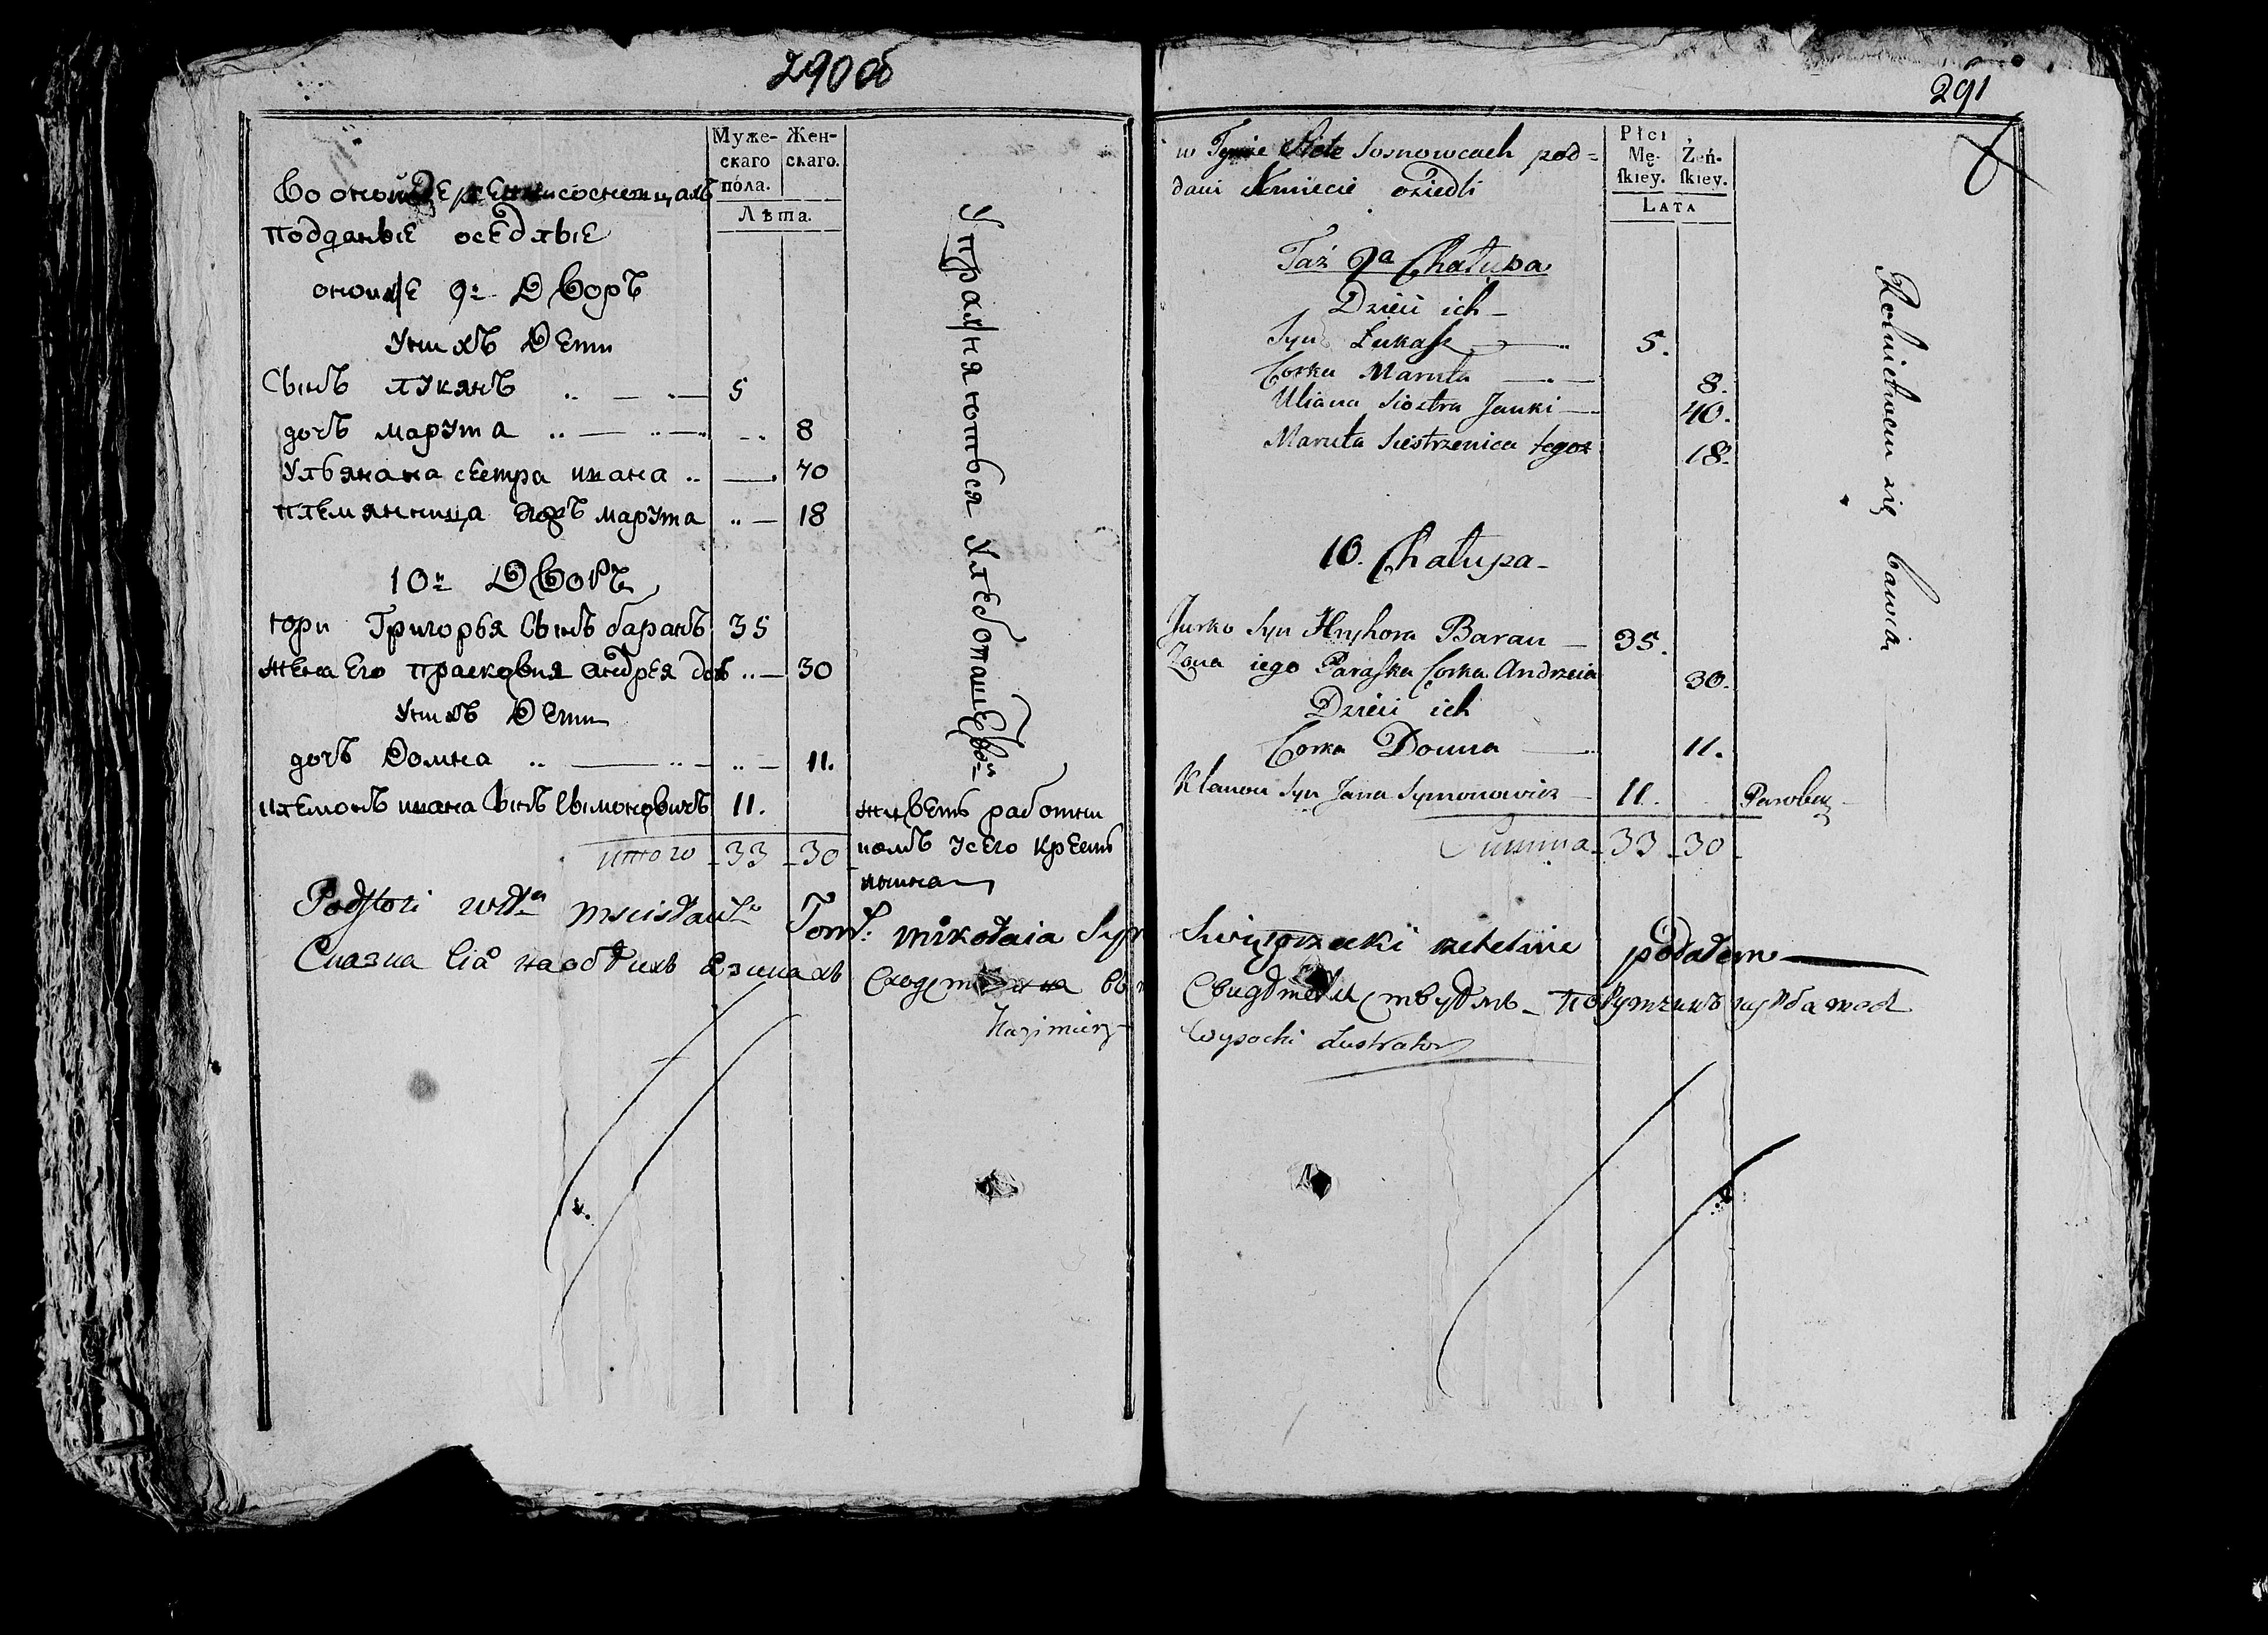 290 об
Муже-
скаго
пола.
Жен-
скаго.
Лѣта.
Во оной Деревни сосновцахъ
подданыЕ осЕдлыЕ
оножЕ 9й Дворъ
У нихъ Дети
Сынъ лукянъ .. — .. — 5
дочъ марута .. — .. — 8
Ульянана сЕстра ивана .. — 40
племянница Его марута .. — 18
10й Дворъ
юри Григорья Сынъ баранъ 35
жЕна Его прасковия андрЕя доч .. — 30
У нихъ Дети
дочъ Домна .. — .. — 11.
клЕмонъ ивана Сынъ Сымоновичъ 11.
итого 33 30
Упражняютъся хлЕбопашЕтвом
живЕтъ работни
комъ усЕго крЕсть
янина
Podstoli wdа Mscisław: Tom: Mikołaia Syn
Сказка сія на обѣихъ языкахъ
Kazimierz
291
w Tymże Siele Sosnowcach pod=
dani Kmiecie osiedli
Płci
Mę-
ſkiey.
Żeń-
ſkiey.
LATA
Taż 9a Chałupa
Dzieci ich —
Syn Łukasz — 5.
Corka Maruta — 8.
Uliana Siostra Janki — 40.
Maruta Siestrzenica tegoż 18.
10. Chałupa —
Jurko Syn Hryhora Baran — 35.
Zona iego Paraſka Corka Andrzeia 30.
Dzieci ich
Corka Domna — 11.
Klamon Syn Jana Symonowicz — 11. Parobek
Summa 33 30
Rolnictwem się bawią
rzetelnie podałem
Wysocki Lustrator